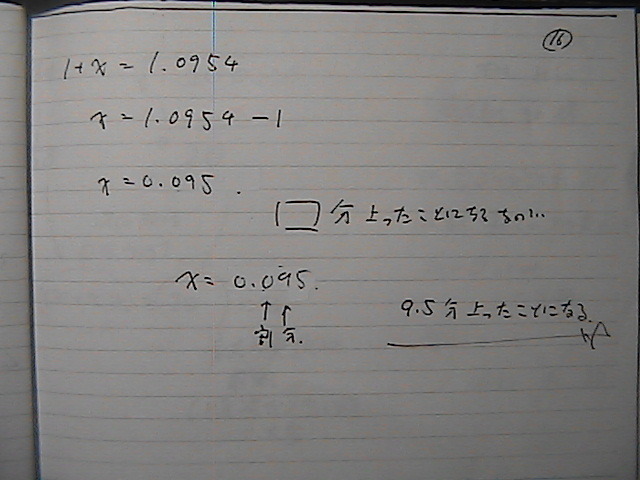 16
1+x=1.0954
x=1.0954-1
x=0.095.
□分上ったことになるので...
x=0.095.
↑↑
割分.
9.5分上ったことになる.